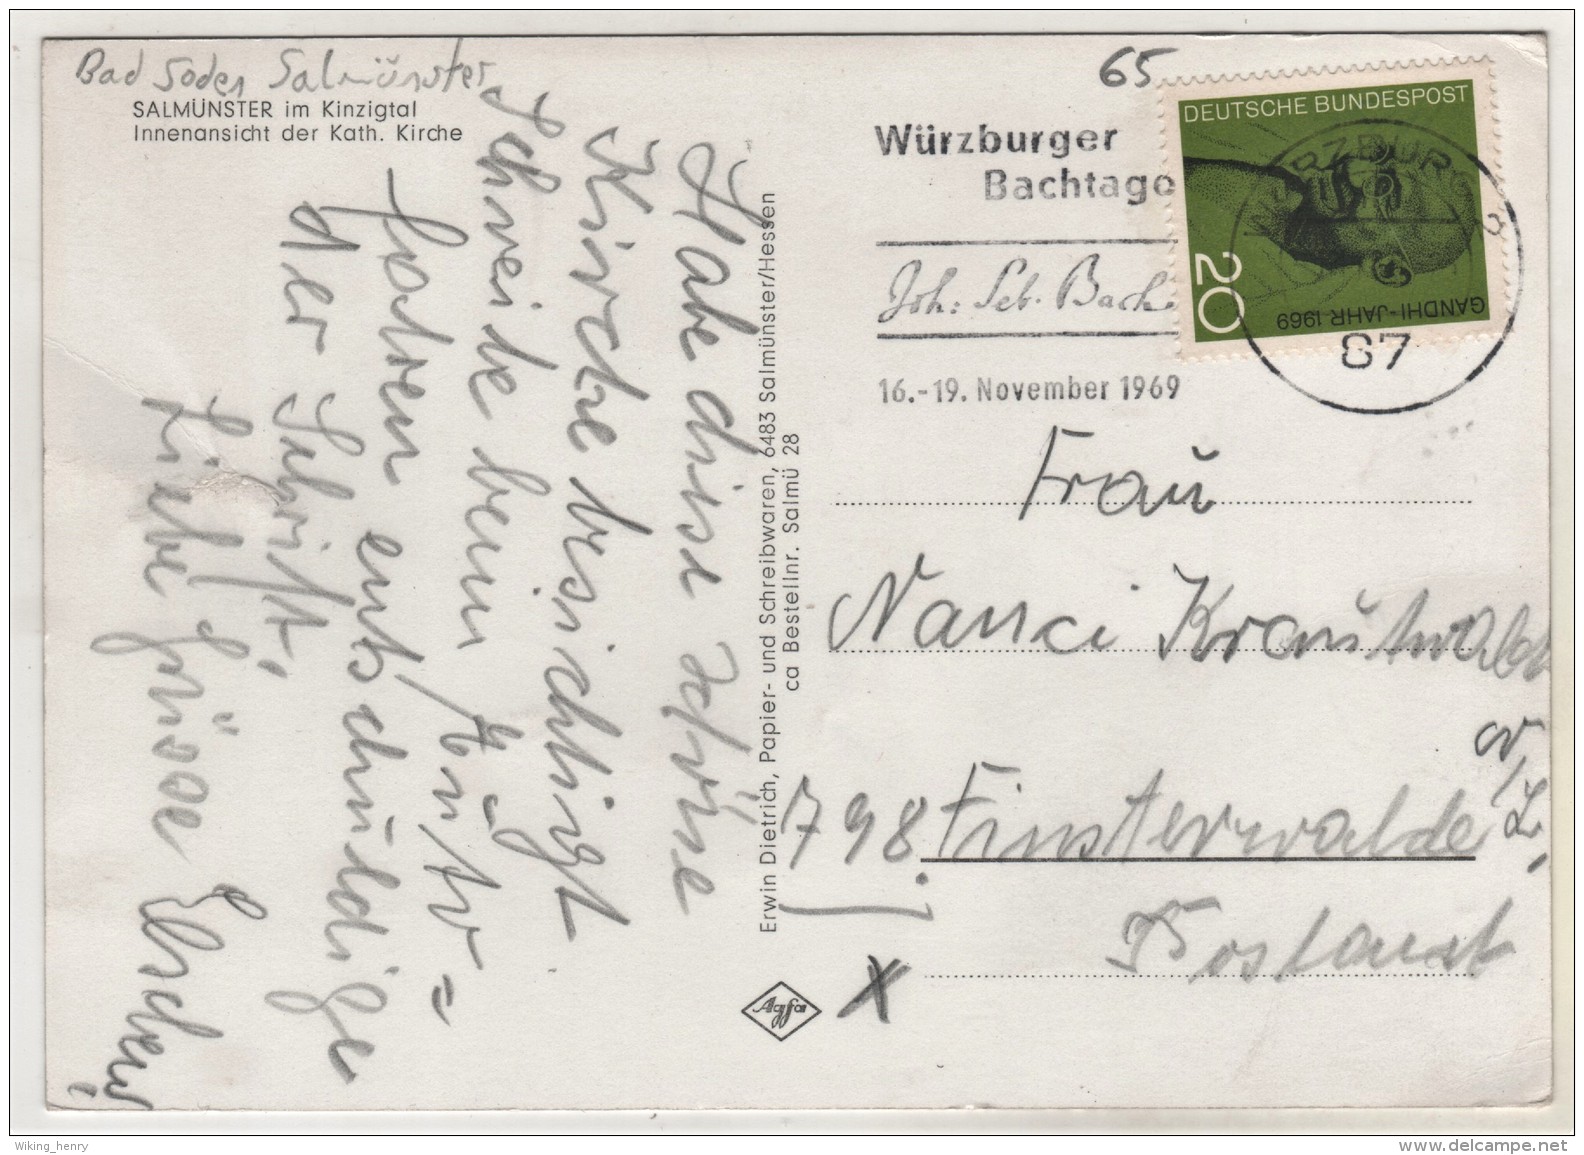 Bad Soden Salmünster
SALMÜNSTER im Kinzigtal
Innenansicht der Kath. Kirche
Habe diese schöne
Kirche besichtigt
Schreibe beim
der Schrift.
Liebe Grüsse
Erwin Dietrich, Papier- und Schreibwaren, 6483 Salmünster/Hessen
ca Bestellnr. Salmü 28
Agfa
65
Würzburger
Bachtage
Joh: Seb. Bach
16.-19. November 1969
DEUTSCHE BUNDESPOST
20
GANDHI-JAHR 1969
WÜRZBURG 2
87
Frau
Nanci Krautwald
798 Finsterwalde N/L.
Postamt
X
Wiking_henry
www.delcampe.net